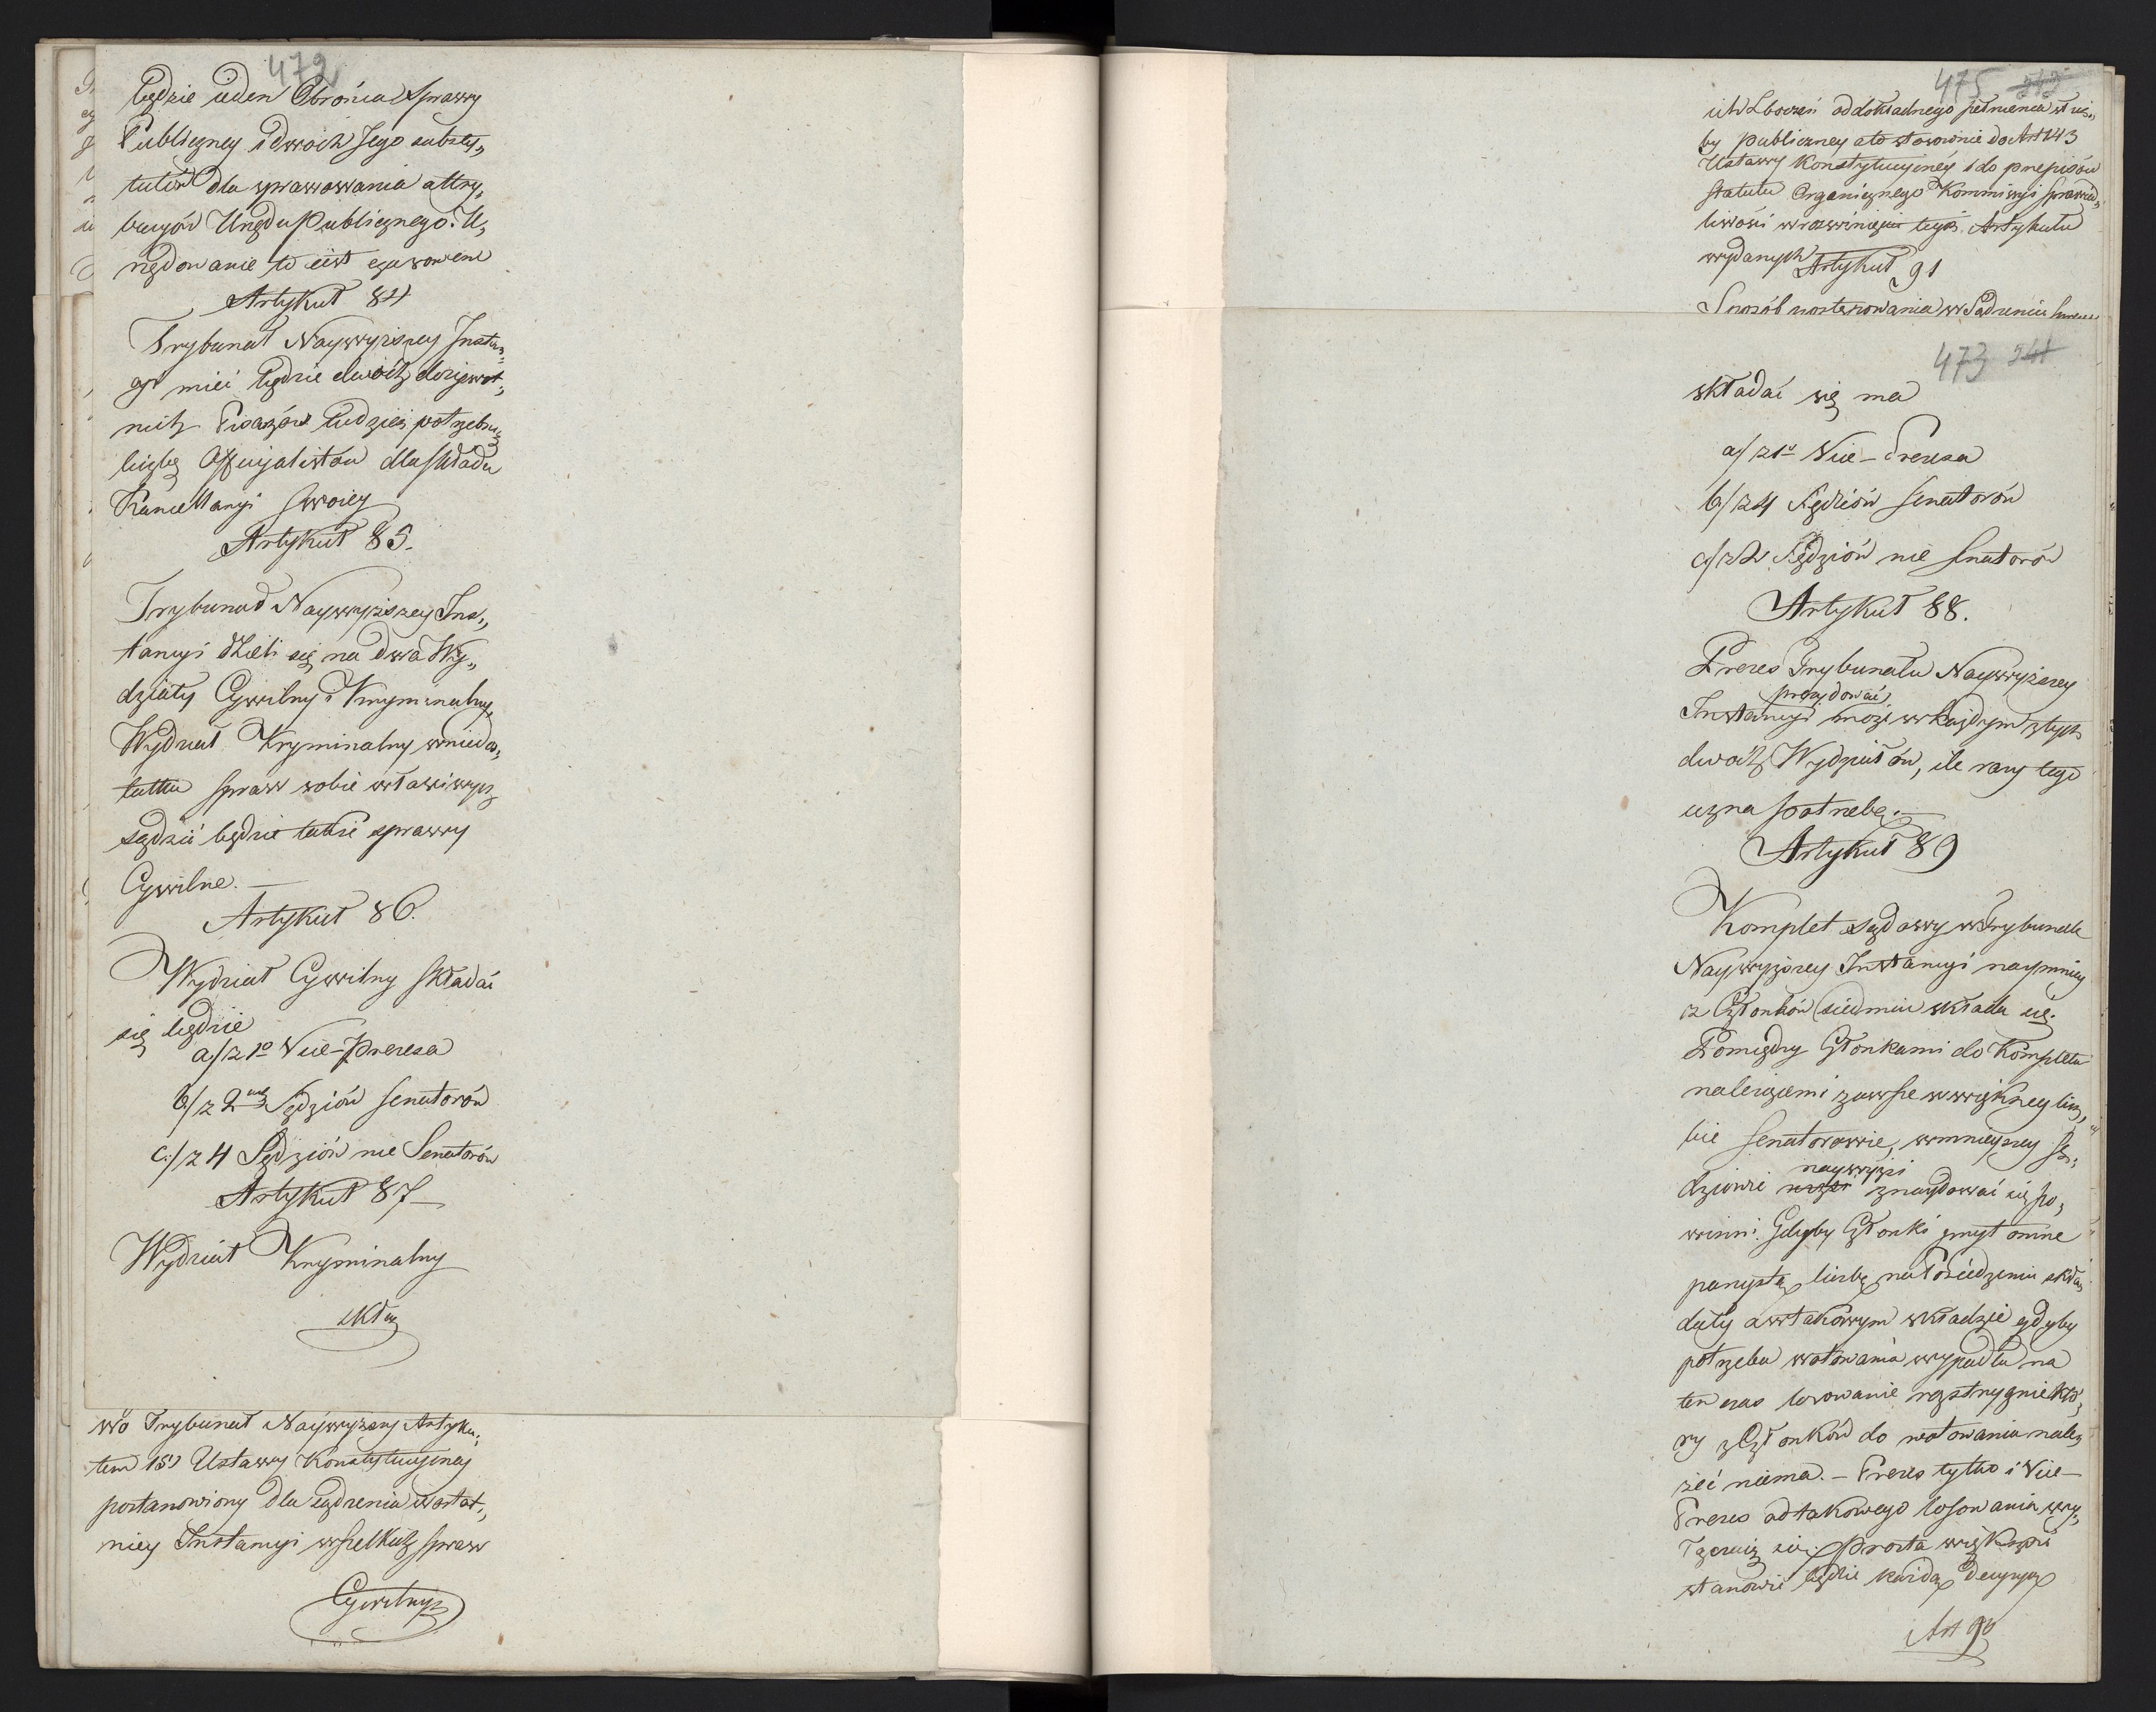 472
będzie ieden Obrońca Sprawy
Publiczney i dwóch Jego substy„
tutów dla sprawowania attry„
bucyów Urzędu Publicznego. U„
rzędowanie to iest czasowem
Artykuł 84
Trybunał Naywyższey Instan„
cyi mieć będzie dwóch dożywot„
nich Pisarzów tudzież potrzebną
liczbę Officyalistów dla składu
Kancellaryi swoiey
Artykuł 85.
Trybunał Naywyższey Ins„
tancyi dzieli się na dwa Wy„
działy Cywilny i Kryminalny,
Wydział Kryminalny w niedos„
tatku spraw sobie właściwych
sądzić będzie także sprawy
Cywilne. —
Artykuł 86.
Wydział Cywilny składać
się będzie
a/ z 1o Vice-Prezesa
b/ z 2ch Sędziów Senatorów
c./ z 4 Sędziów nie Senatorów
Artykuł 87 —
Wydział Kryminalny
skła„
wo Trybunał Naywyższy Artyku„
łem 151 Ustawy Konstytucyiney
postanowiony dla sądzenia w ostat„
niey Instancyi wszelkich spraw
Cywilnych
475 243
ich Zboczeń od dokładnego pełnienia służ„
by publiczney a to stosownie do Art 143
Ustawy Konstytucyiney i do przepisów
Statutu Organicznego Kommissyi Sprawied„
liwości w rozwinięciu tegoż Artykułu
wydanych
Artykuł 91
Sposób postępowania w Sądzeniu
473 241
składać się ma
a/ z 1o Vice-Prezesa
b/ z 4 Sędziów Senatorów
c/ z 2 Sędziów nie Senatorów
Artykuł 88.
Prezes Trybunału Naywyższey
prezydować
Instancyi może w każdym z tych
dwóch Wydziałów, ile razy tego
uzna potrzebę. —
Artykuł 89
Komplet sądowy w Trybunale
Naywyższey Instancyi naymniey
z Członków siedmiu składa się.
Pomiędzy Członkami do Kompletu
należącemi zawsze w większey licz„
bie Senatorowie, w mnieyszey Sę„
naywyżsi
dziowie niżsi znaydować się po„
winni. Gdyby Członki przytomne
parzystą liczbę na Posiedzeniu skła„
dały a w takowym składzie gdyby
potrzeba wotowania wypadła na
ten czas losowanie rozstrzygnie któ„
ry z Członków do wotowania nale„
żeć niema. — Prezes tylko i Vice-
Prezes od takowego losowania wy„
łączaią się. Prosta większość
stanowić będzie każdą decyzyą
Art 90